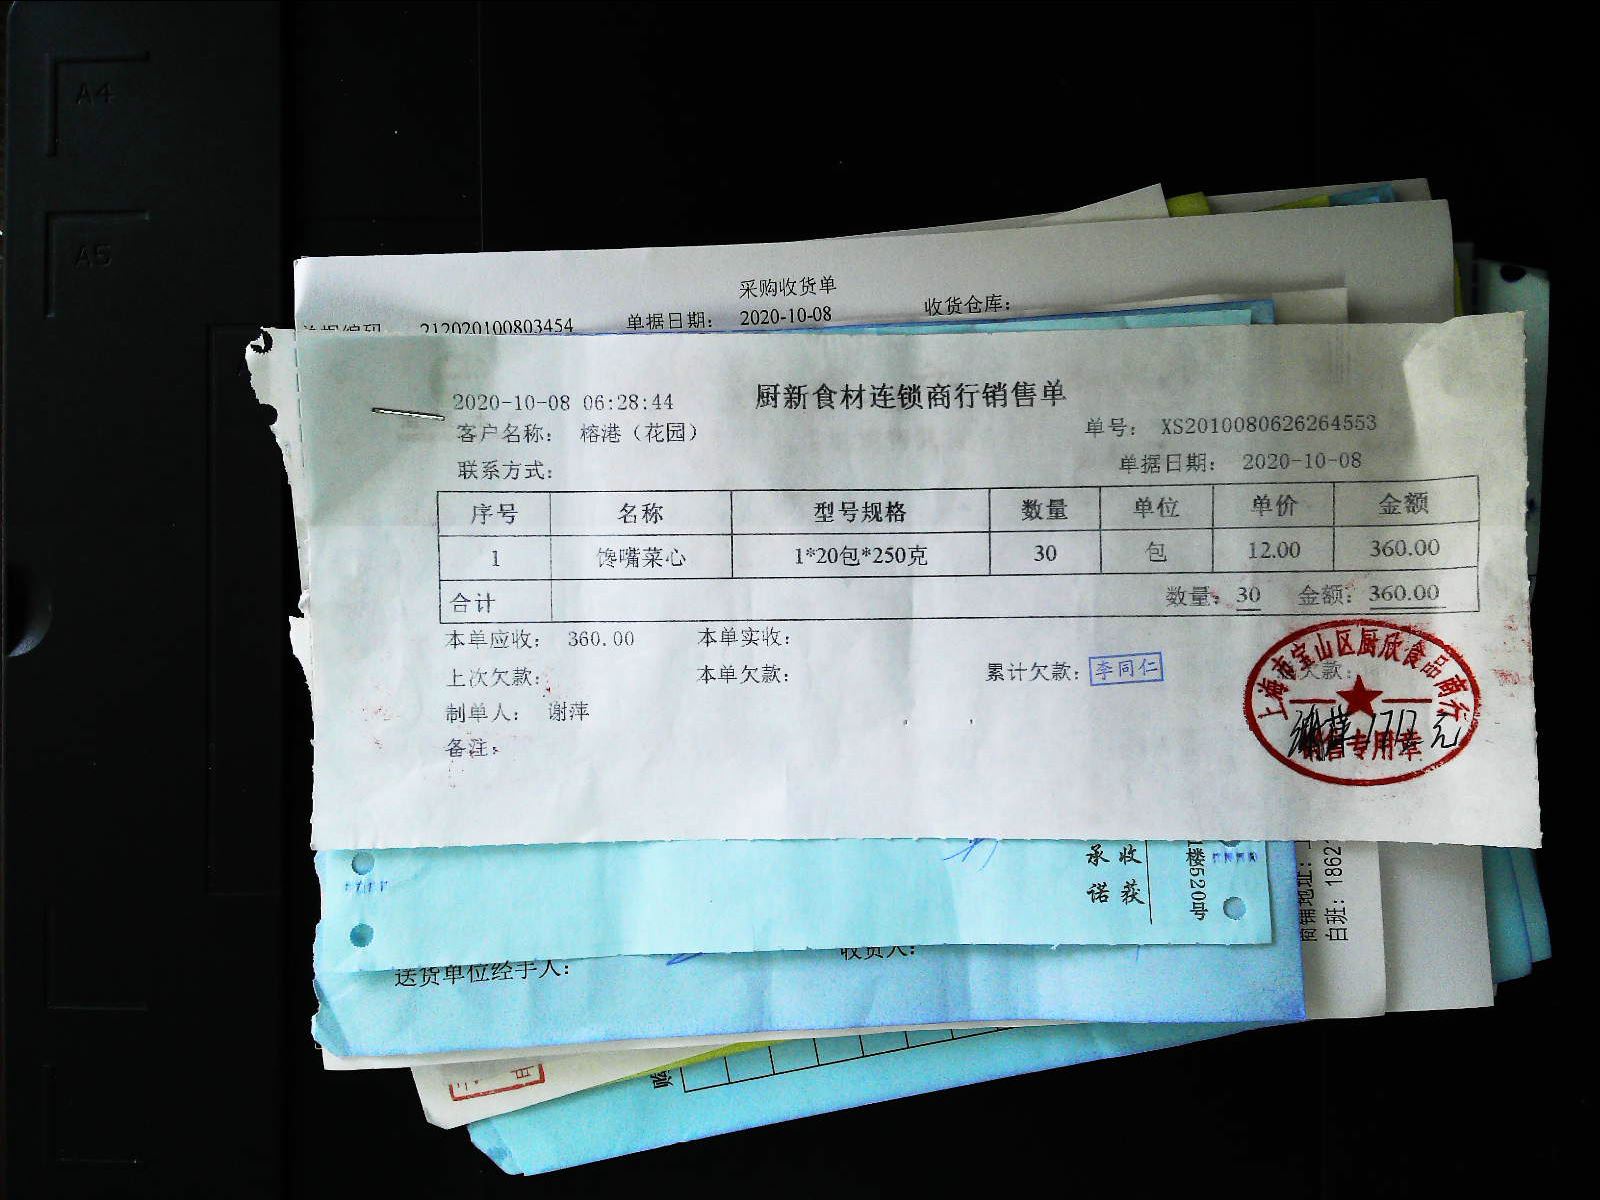 A4
A5
采购收货单
212020100803454 单据日期: 2020-10-08 收货仓库:
厨新食材连锁商行销售单
2020-10-08 06:28:44
客户名称: 榕港（花园） 单号: XS2010080626264553
联系方式: 单据日期: 2020-10-08
序号 名称 型号规格 数量 单位 单价 金额
1 馋嘴菜心 1*20包*250克 30 包 12.00 360.00
合计 数量: 30 金额: 360.00
本单应收: 360.00 本单实收:
上次欠款: 本单欠款: 累计欠款: 李同仁 欠款:
制单人: 谢萍
备注:
上海市宝山区厨欣食品商行
销售专用章
承诺 收获
1楼520号
商铺地址:
白班: 1862
送货单位经手人: 收货人:
购